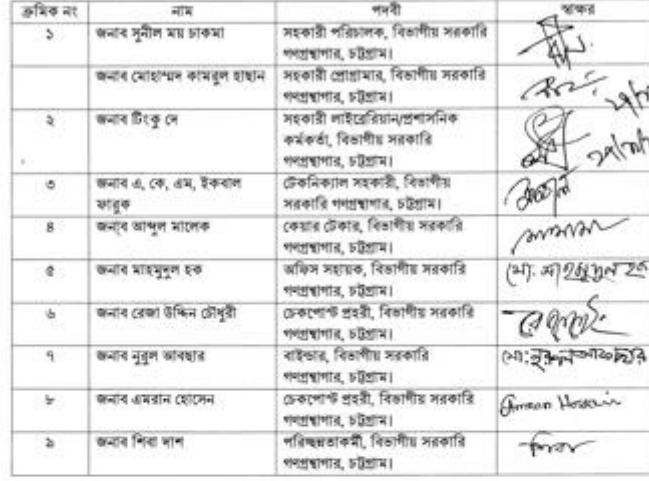 ক্রমিক নং নাম পদবী স্বাক্ষর
১ জনাব সুনীল ময় চাকমা সহকারী পরিচালক, বিভাগীয় সরকারি
গণগ্রন্থাগার, চট্টগ্রাম।
জনাব মোহাম্মদ কামরুল হাছান সহকারী প্রোগ্রামার, বিভাগীয় সরকারি
গণগ্রন্থাগার, চট্টগ্রাম।
২ জনাব টিংকু দে সহকারী লাইব্রেরিয়ান/প্রশাসনিক
কর্মকর্তা, বিভাগীয় সরকারি
গণগ্রন্থাগার, চট্টগ্রাম।
৩ জনাব এ, কে, এম, ইকবাল টেকনিক্যাল সহকারী, বিভাগীয়
ফারুক সরকারি গণগ্রন্থাগার, চট্টগ্রাম।
৪ জনাব আব্দুল মালেক কেয়ার টেকার, বিভাগীয় সরকারি
গণগ্রন্থাগার, চট্টগ্রাম।
৫ জনাব মাহমুদুল হক অফিস সহায়ক, বিভাগীয় সরকারি মো: মাহমুদুল হক
গণগ্রন্থাগার, চট্টগ্রাম।
৬ জনাব রেজা উদ্দিন চৌধুরী চেকপোস্ট প্রহরী, বিভাগীয় সরকারি
গণগ্রন্থাগার, চট্টগ্রাম।
৭ জনাব নুরুল আবছার বাইন্ডার, বিভাগীয় সরকারি মো: নুরুল আবছার
গণগ্রন্থাগার, চট্টগ্রাম।
৮ জনাব এমরান হোসেন চেকপোস্ট প্রহরী, বিভাগীয় সরকারি
গণগ্রন্থাগার, চট্টগ্রাম। Hossain
৯ জনাব শিবা দাশ পরিচ্ছন্নতাকর্মী, বিভাগীয় সরকারি শিবা
গণগ্রন্থাগার, চট্টগ্রাম।